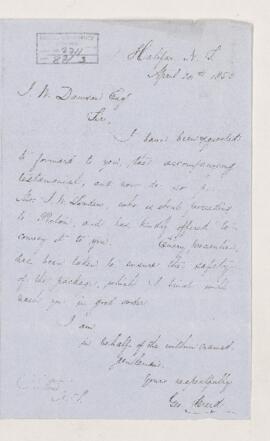 Halifax N. S.
April 20th 1850
J. W. Dawson Esqr
Sir,
I have been requested
to forward to you, the accompanying
testimonial, and now do so p
Mr. J. W. who is about proceeding
to Pictou, and has kindly offered to
convey it to you. Every precaution
has been taken to ensure the safety
of the package, which I trust will
reach you in good order
I am
in behalf of the within named
Gentlemen.
Yours respectfully
Geo.